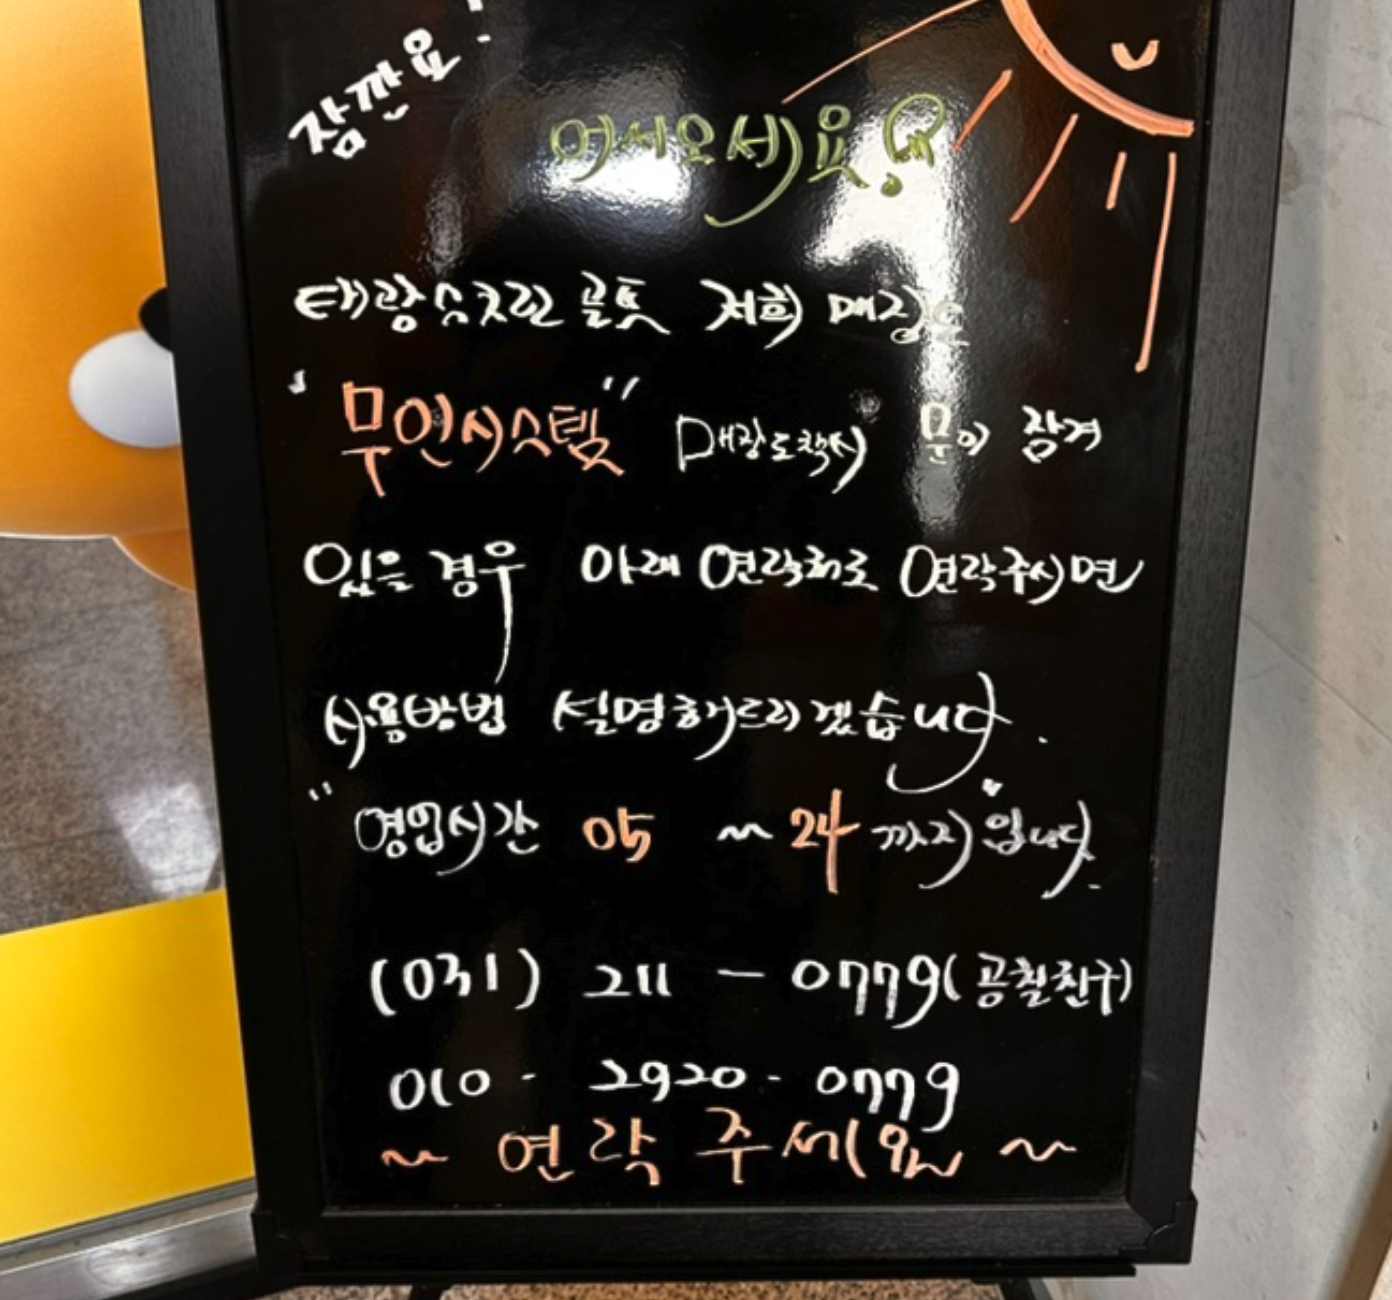 잠깐요!
어서오세요!
태광스크린 골프 저희 매장은
"무인시스템" 매장도착시 문이 잠겨
있을 경우 아래 연락처로 연락주시면
사용방법 설명해드리겠습니다.
"영업시간 05 ~ 24까지"입니다.
(031) 211 - 0779(공칠친구)
010 - 2920 - 0779
~ 연락 주세요 ~